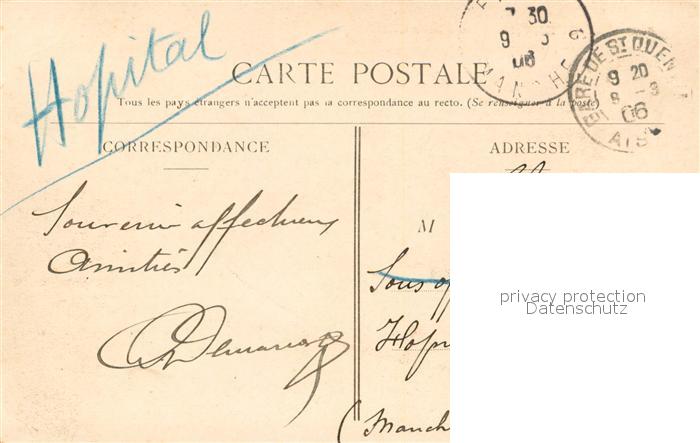 Hopital
CARTE POSTALE
Tous les pays étrangers n'acceptent pas la correspondance au recto. (Se renseigner à la poste)
7 30
9
06
MANCHE
GARE DE ST QUEN
9 20
8 - 3
06
AIS
CORRESPONDANCE
ADRESSE
Souvenir affectueux
Amitiés
M
Sous
Hop
(Manch
privacy protection
Datenschutz